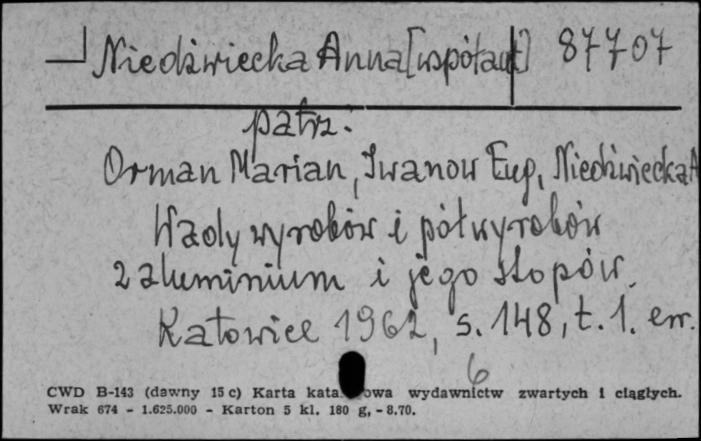 Niedźwiecka Anna [współaut] 87707
patrz:
Orman Marian, Iwanow Eug., Niedźwiecka A
Wady wyrobów i półwyrobów
z aluminium i jego stopów.
Katowice 1962, s. 148, t. 1. err.
6
CWD B-143 (dawny 15 c) Karta kata owa wydawnictw zwartych i ciągłych.
Wrak 674 - 1.625.000 - Karton 5 kl. 180 g, - 8.70.